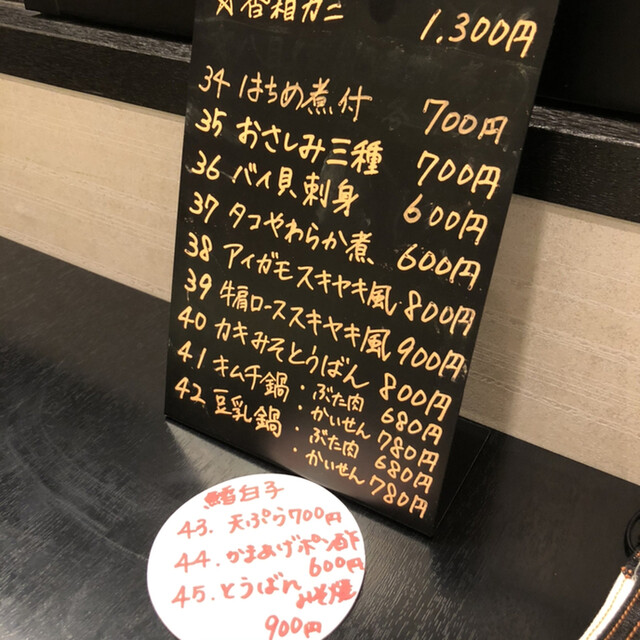 香箱カニ 1,300円
34 はちめ煮付 700円
35 おさしみ三種 700円
36 バイ貝刺身 600円
37 タコやわらか煮 600円
38 アイガモスキヤキ風 800円
39 牛肩ローススキヤキ風 900円
40 カキみそとうばん 800円
41 キムチ鍋・ぶた肉 680円
・かいせん 780円
42 豆乳鍋・ぶた肉 680円
・かいせん 780円
鱈白子
43. 天ぷら700円
44. かまあげポン酢
600円
45. とうばん
みそ焼
900円